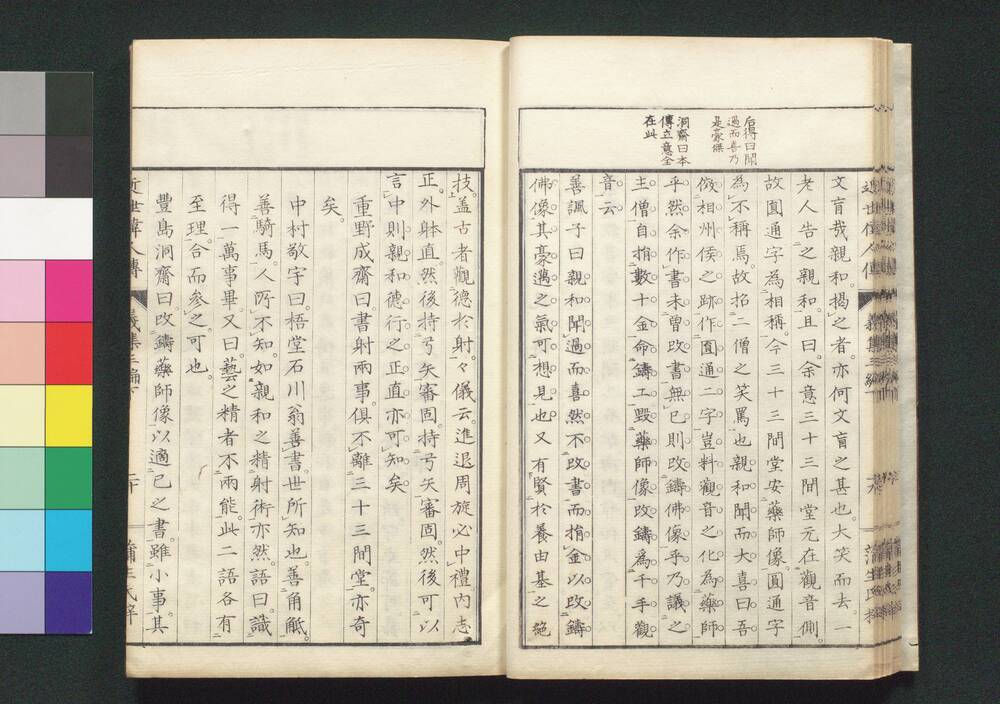 后得曰聞
過而喜乃
是豪傑
洞齋曰本
傳立意全
在此
文盲哉親和揭之者亦何文盲之甚也大笑而去一
老人告之親和且曰余意三十三間堂元在觀音側
故圓通字為相稱今三十三間堂安藥師像圓通字
為不稱焉故招二僧之笑罵也親和聞而大喜曰吾
傚相州侯之跡作圓通二字豈料觀音之化為藥師
乎然余作書未曾改書無已則改鑄佛像乎乃議之
主僧自捐數十金命鑄工毀藥師像改鑄為千手觀
音云
善諷子曰親和聞過而喜然不改書而捐金以改鑄
佛像其豪邁之氣可想見也又有賢於養由基之絕
技蓋古者觀德於射々儀云進退周旋必中禮內志
正外躰直然後持弓矢審固持弓矢審固然後可以
言中則親和德行之正直亦可知矣
重野成齋曰書射兩事俱不離三十三間堂亦奇
矣
中村敬宇曰梧堂石川翁善書世所知也善角觝
善騎馬人所不知如親和之精射術亦然語曰識
得一萬事畢又曰藝之精者不兩能此二語各有
至理合而參之可也
豐島洞齋曰改鑄藥師像以適已之書雖小事其
近世偉人傳 義集三編下